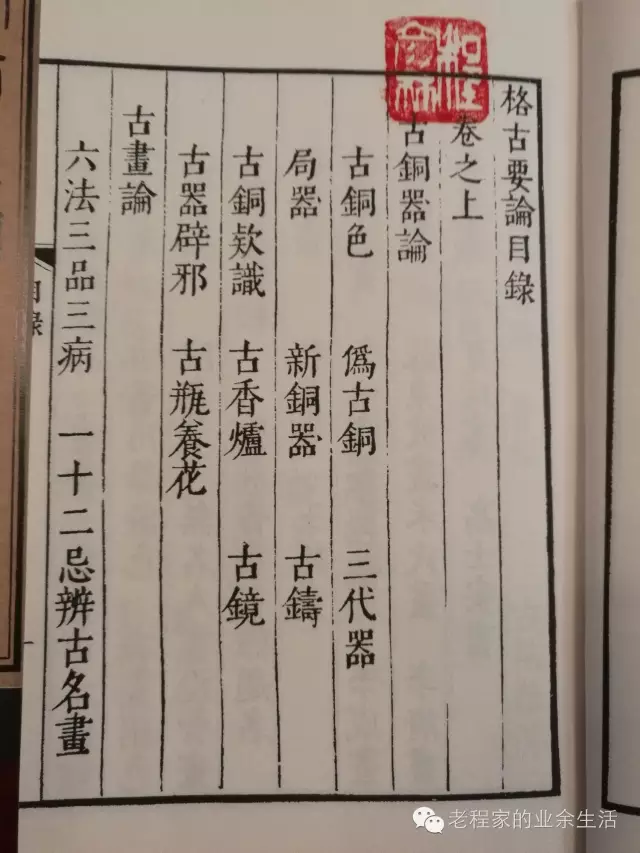 格古要論目錄
卷之上
古銅器論
古銅色 僞古銅 三代器
局器 新銅器 古鑄
古銅欵識 古香爐 古鏡
古器辟邪 古瓶養花
古畫論
六法三品三病 一十二忌辨古名畫
目錄
老程家的业余生活